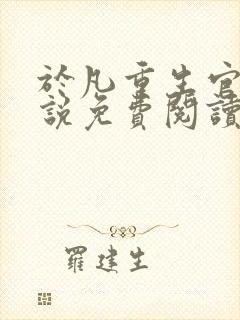 於凡重生官
說免費閱讀
羅建生